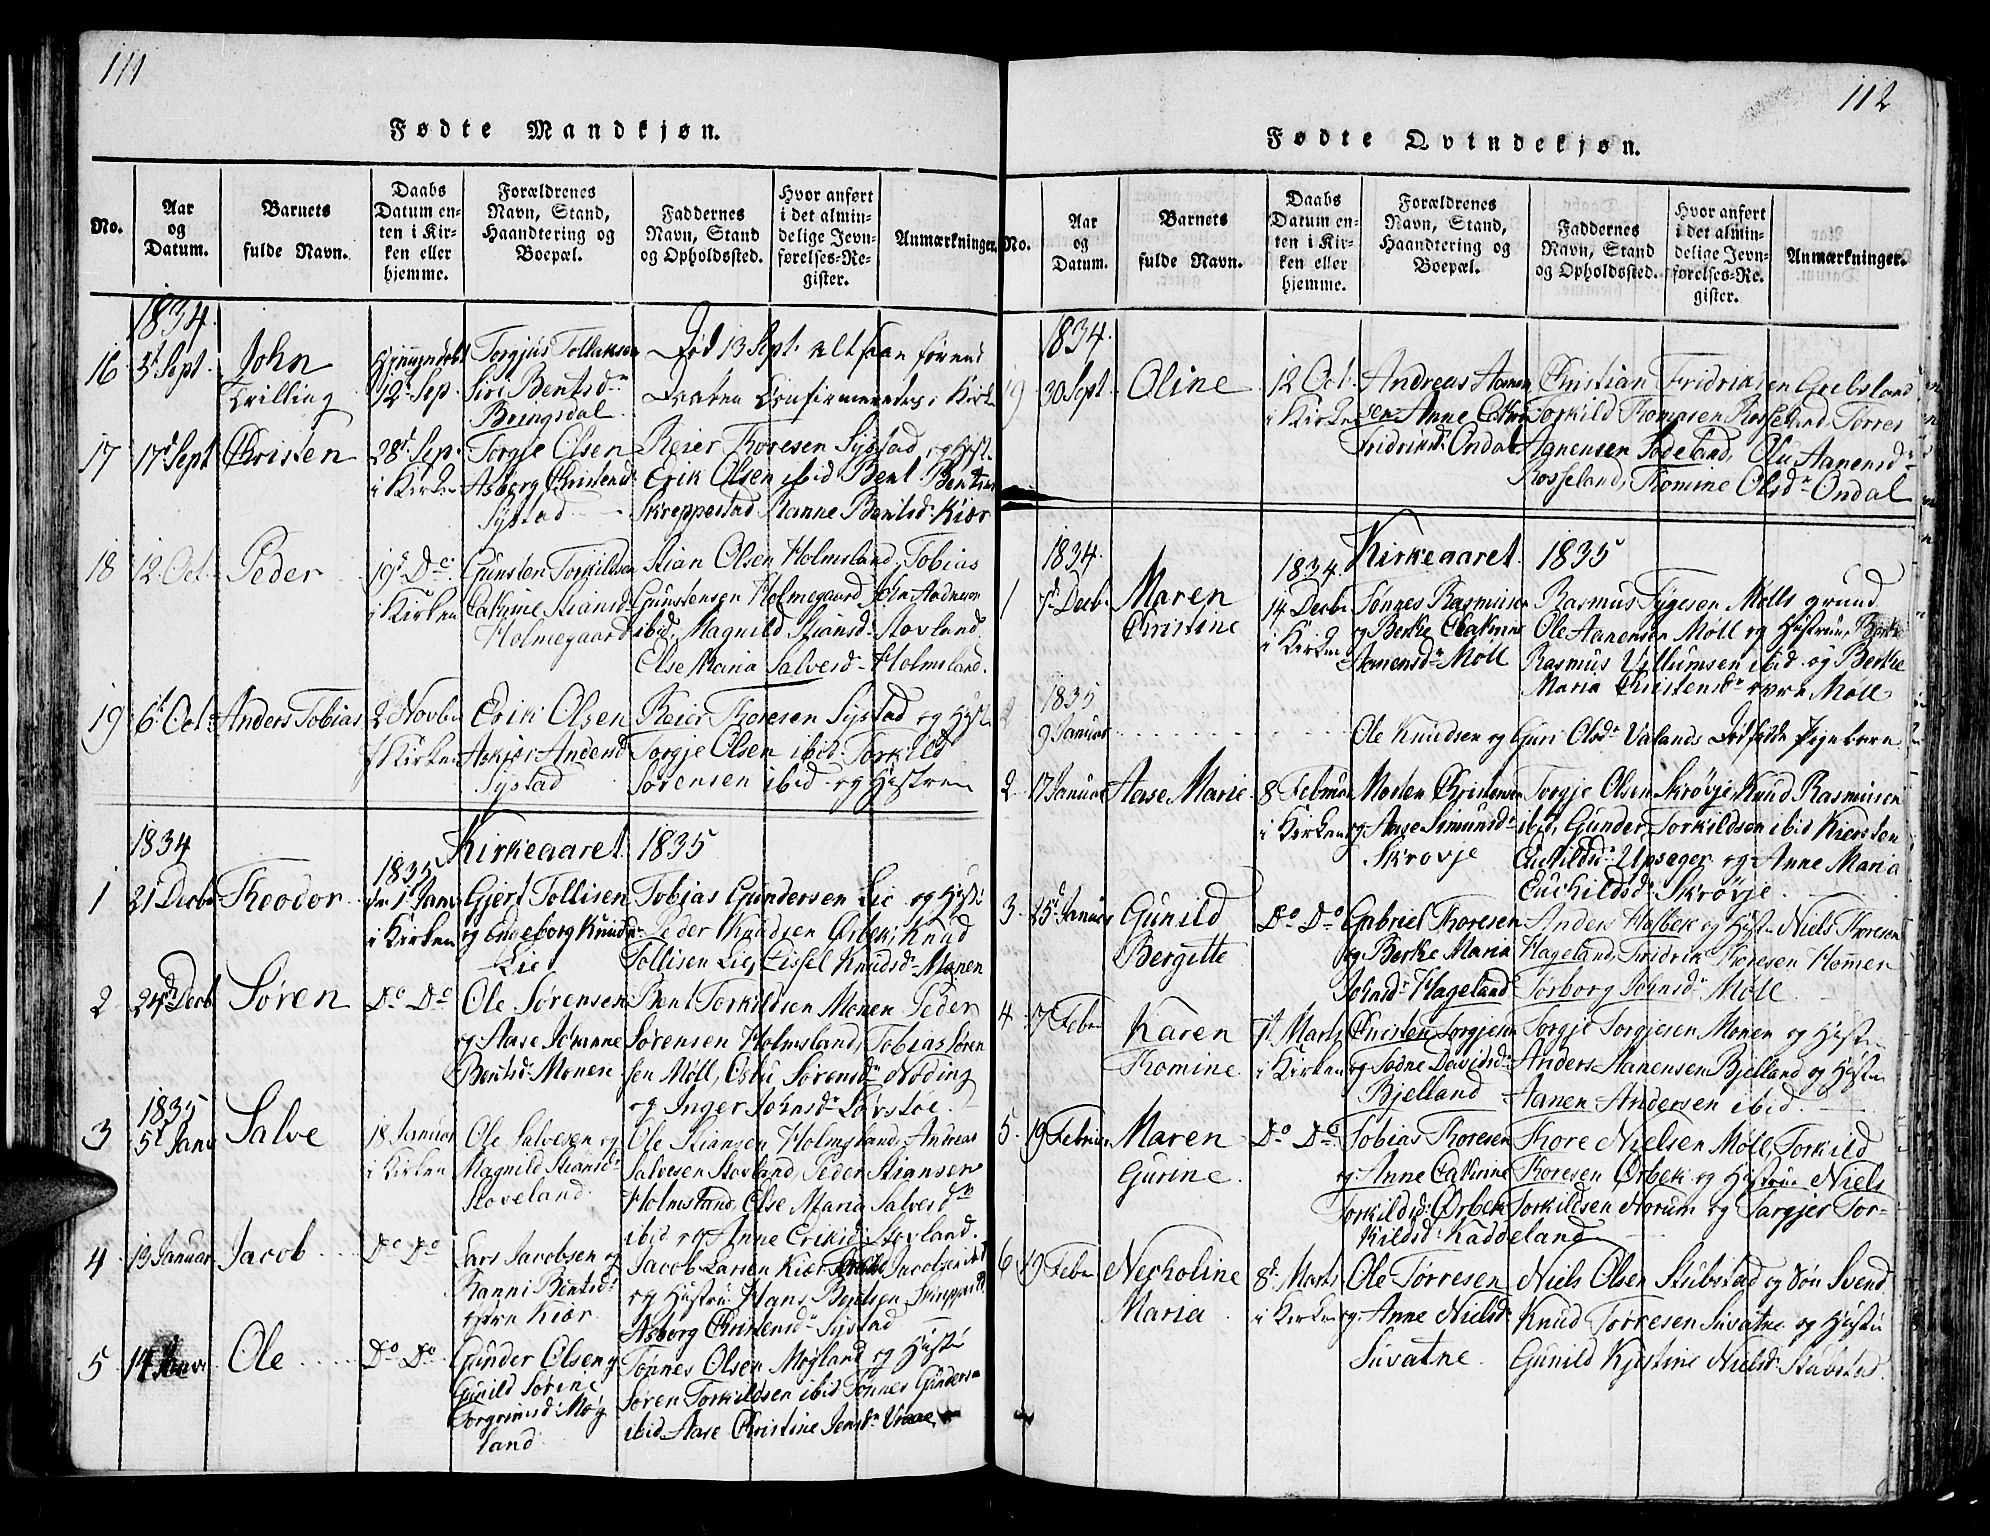 111
Fødte Mandkjøn.
No.
Aar og Datum.
Barnets fulde Navn.
Daabs Datum enten i Kirken eller hjemme.
Forældrenes Navn, Stand, Haandtering og Boepæl.
Faddernes Navn, Stand og Opholdssted.
Hvor anført i det almindelige Jevnførelses-Register.
Anmærkninger.
1834.
16 5t Sept. John Trilling
12t Sep.
Torgjus Tollaksen
Siri Bentsd:
Bringsdal
Død 13 Sept.
17 17d Sept Christen
28d Sep. i Kirken
Torgje Olsen
Asborg Christensd:
Systad
Reier Thoresen Systad, og Hustr.
Erik Olsen ibid: Bent Bentsen
Skreppestad Nanne Bentsd: Kiær
18 12 Oct. Peder
19d Do. i Kirken
Gunsten Torkildsen
Cathrine Stiansd:
Holmegaard
Stian Olsen Holmsland, Tobias
Gunstensen Holmegaard
ibid, Magnild Stiansd: Stovland
Else Maria Salvesd: Holmsland.
19 6t Oct: Anders Tobias
2 Novbr i Kirken
Erik Olsen
Andersd
Systad
Reier Thoresen Systad og Hustr
Torgje Olsen ibid Torkild
Sørensen ibid og Hustrue
1834
Kirkeaaret 1835
1835
1 21 Decbr Theodor
1t Janv i Kirken
Gjert Tollisen
og Engeborg Knudsd:
Lie
Tobias Gundersen Lie og Hustr:
Peder Knudsen Ørbek, Knud
Tollisen Lie, Cissel Knudsd: Monen
2 24d Decb Søren
Do Do
Ole Sørensen
og Aase Johanne
Bentsd: Monen
Bent Torkildsen Monen Peder
Sørensen Holmsland, Tobias Søren
sen Møll, Sørensd: Nøding
og Inger Johnsd:
1835
3 5t Janv Salve
18 Januar i Kirken
Ole Salvesen og
Magnild Stiansd:
Stoveland.
Ole Stiansen Holmsland, Andreas
Salvesen Stovland, Peder Stiansen
Holmsland, Else Maria Salvesd:
ibid og Anne Eriksd: Stovland.
4 13 Januar Jacob
Do Do
Lars Jacobsen og
Ranni Bentsd:
Kiær
Jacob Larsen Kiær Jacobsen ibid
og Hustru Hans Bentsen
Asborg Christensd: Systad
5 14 Janv Ole
Do Do
Gunder Olsen og
Gunild Sørine
Torgrimsd: Møg
land
Tønnes Olsen Møgland og Hustr
Søren Torkildsen ibid Tønnes Gundersen
ibid Aase Christine Jensd:
112
Fødte Qvindekjøn.
No.
Aar og Datum.
Barnets fulde Navn.
Daabs Datum enten i Kirken eller hjemme.
Forældrenes Navn, Stand, Haandtering og Boepæl.
Faddernes Navn, Stand og Opholdssted.
Hvor anført i det almindelige Jevnførelses-Register.
Anmærkninger.
1834.
19 30 Sept. Oline
12 Oct. i Kirken
Andreas Aanen
sen Anne
Fridriksd: Ondal
Christian Fridriksen Grebsland
Torkild Thomasen Rosseland, Torres
Aanensen Aanensd:
Rosseland, Thomine Olsd: Ondal
1834.
1834. Kirkeaaret 1835
1 7d Decbr Maren Christine
14 Decbr i Kirken
Tønnes Rasmusen
og Berthe Cathrine
Aanensd: Møll
Rasmus Tygesen Møllsgrund
Ole Aanensen Møll og Hustrue, Berthe
Rasmus Villumsen ibid og Berthe
Maria Christensd: Møll
1835
2 9 Januar
Ole Knudsen og Guri Olsd: Valands Dødfødte Pigebarn
2 17 Januar Aase Marie
8 Februar i Kirken
Morten Christensen
og Aase Simunsd:
Skrovje
Torgje Olsen Skrøvje, Knud Rasmusen
ibid, Gunder Torkildsen ibid Kiersten
Euchildsd: Upseger og Anne Maria
Euchildsd: Skrøvje
3 25d Januar Gunild Bergitte
Do Do
Gabriel Thoresen
og Berthe Maria
Johnsd: Hageland
Anders Holbek og Hustr Niels Thoresen
Hageland, Fridrik Thoresen Homer
Torborg Johnsd: Møll
4 17 Febr Karen Thomine
1t Marts i Kirken
Christen Torgjes
og Davidsd:
Bjelland
Torgje Torgjesen Monen og Hustr
Anders Aanensen Bjelland og Hustr
Aanen Andersen ibid.
5 19 Februar Maren Gurine
Do Do
Tobias Thoresen
og Anne Cathrine
Torkildsd: Ørbek
Thore Nielsen Møll, Torkild
Thoresen Ørbek og Hustrue Niels
Torkildsen Norum og Targjer Tor-
kildsd: Kaddeland
6 19 Febr Necholine Maria
8d Marts i Kirken
Ole Tørresen
og Anne Nielsd:
Suvatne
Niels Olsen Stubstad og Søn Svend
Knud Tørresen Suvatne og Hustr
Gunild Kjestine Nielsd: Stubstad